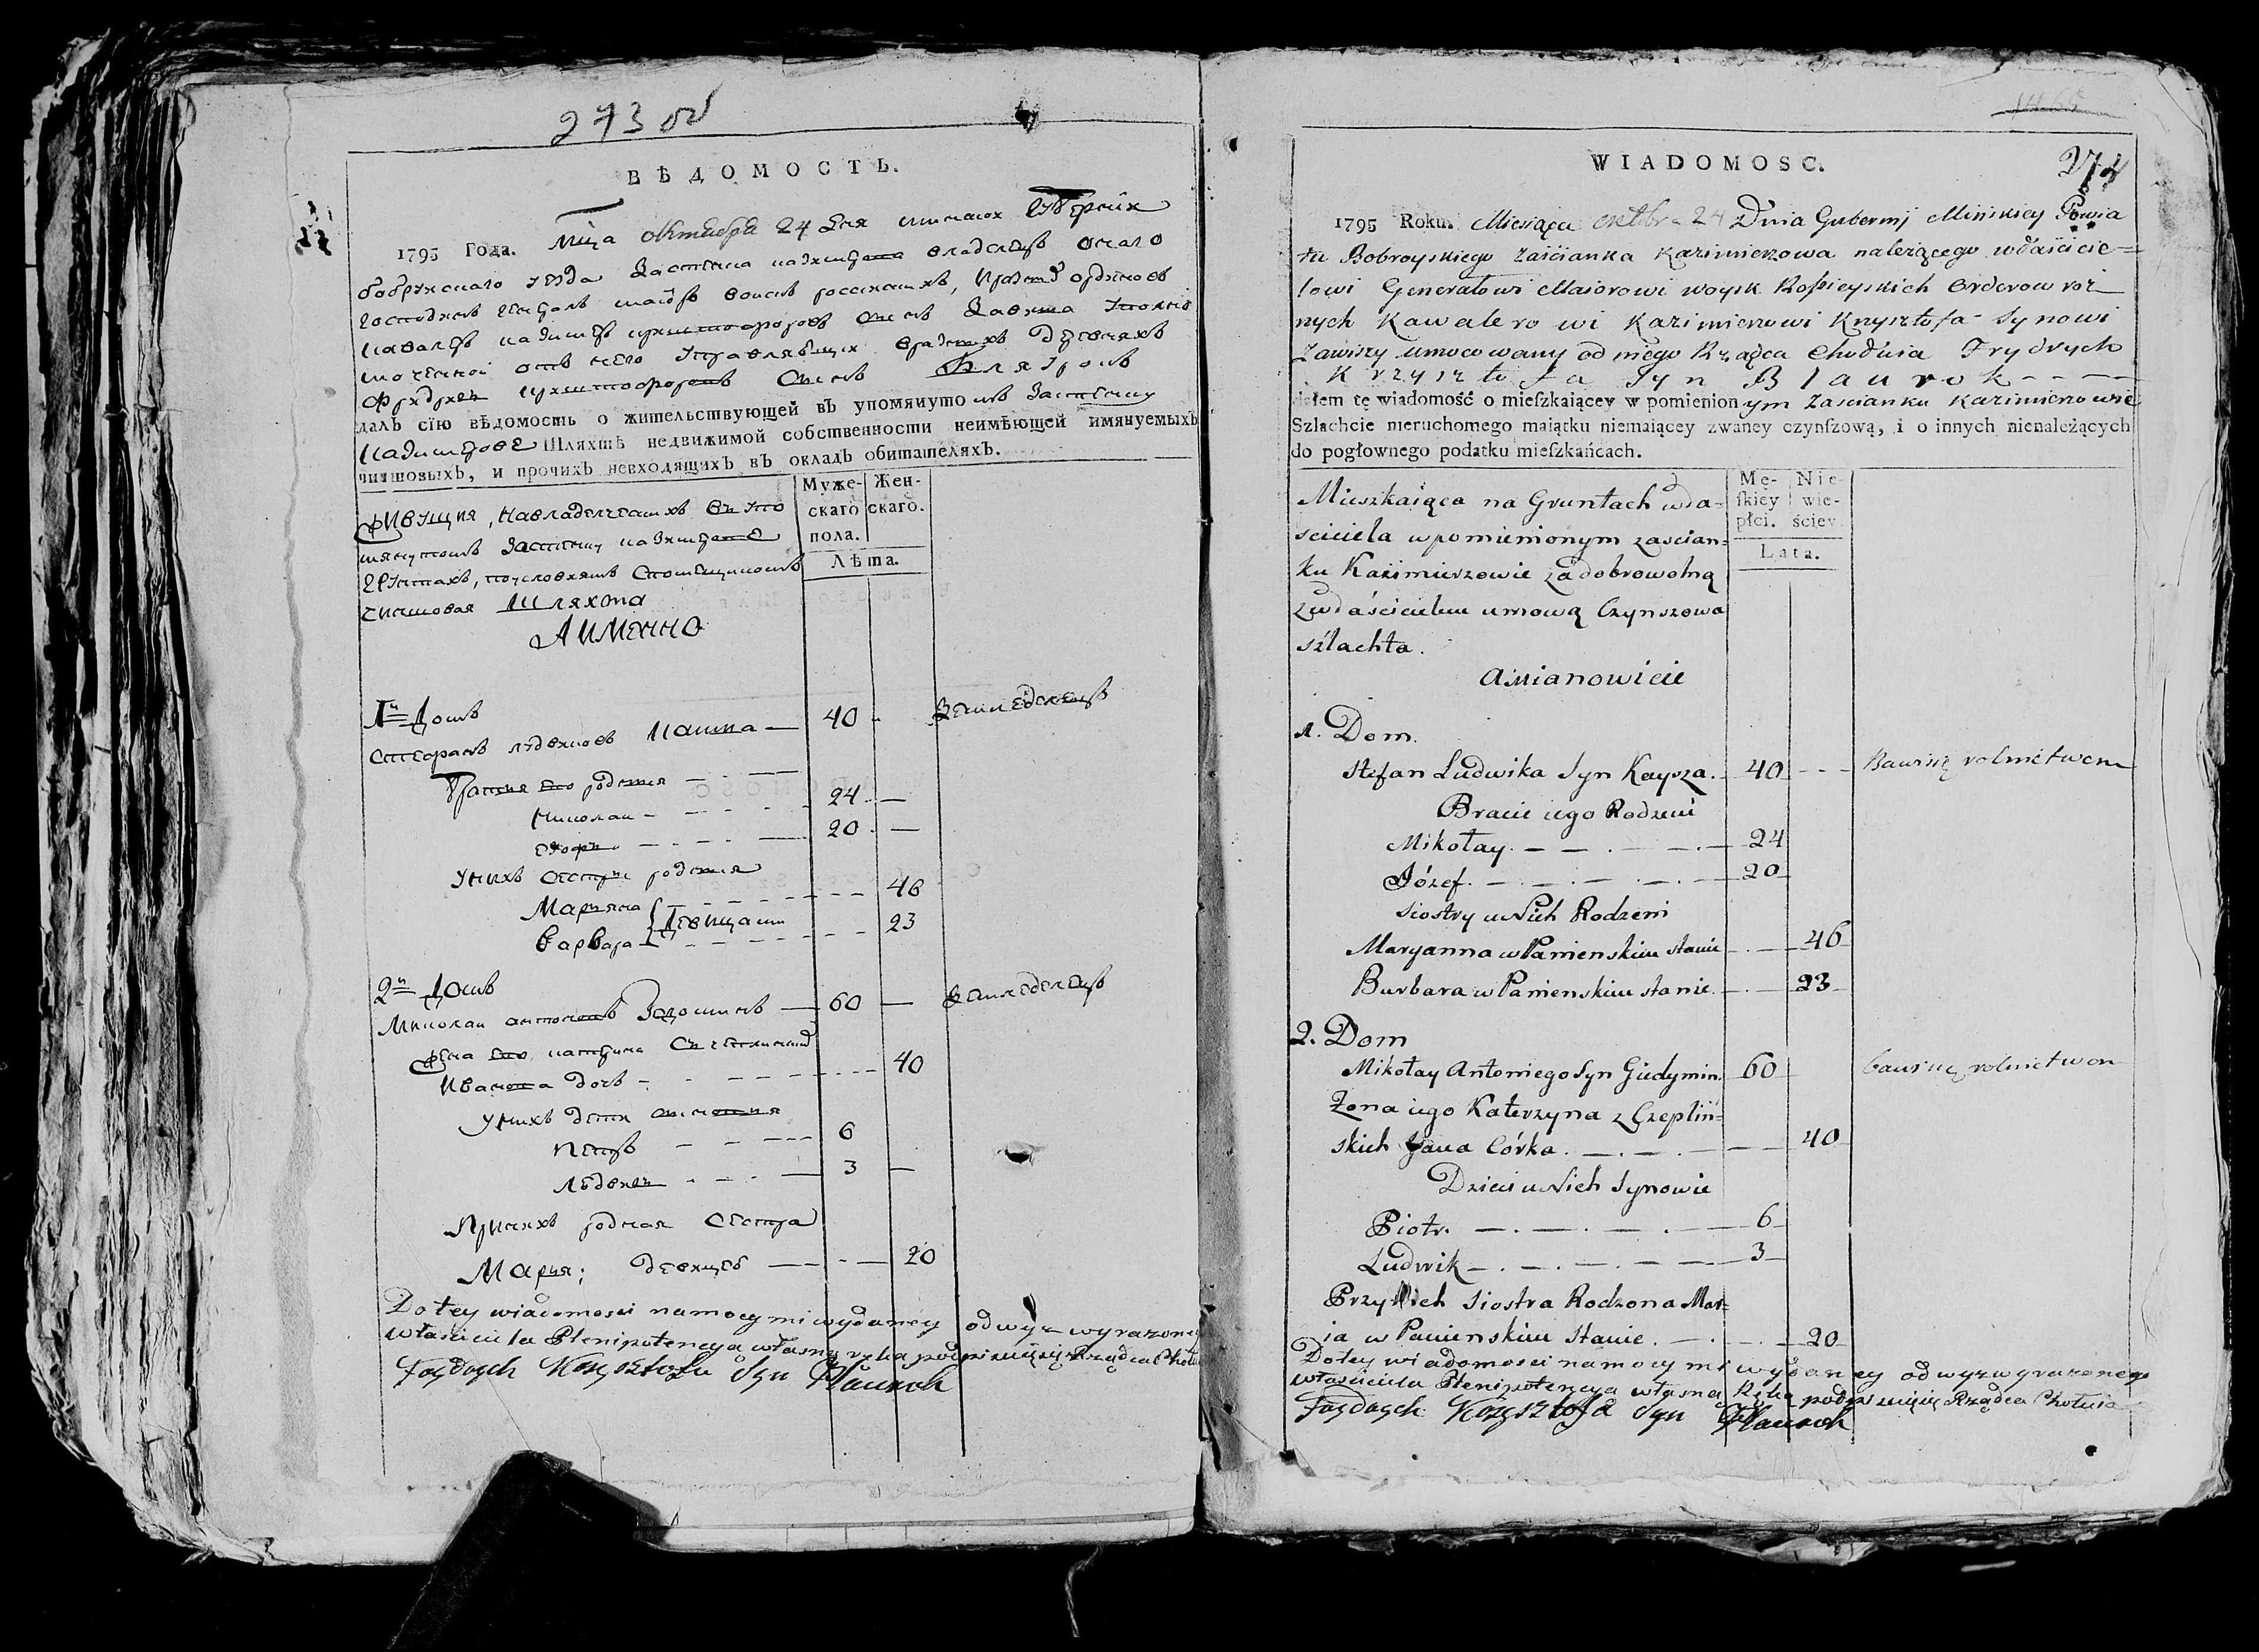 273 об
ВѢДОМОСТЬ.
1795 Года. Мца октября 24 дня минской Губернiи
бобруйскаго уезда Застенка казимерова владельца онаго
господина генералъ маiора воискъ россискихъ, разныхъ орденовъ
кавалера казимера криштофоровъ сынъ Завиша уполно
моченной отъ него управляющiи
Фридрихъ криштофоровъ сынъ Бляурокъ
далъ сїю вѣдомость о жительствующей въ упомянуто мъ Застенку
казимерове Шляхтѣ недвижимой собственности неимѣющей имянуемыхъ
чиншовыхъ, и прочихъ невходящихъ въ окладъ обитателяхъ.
Муже- Жен-
скаго скаго.
пола.
Лѣта.
Живущия, на владелческихъ въ упо
мянутомъ Застенку казимерове
грунтахъ, по условiямъ с помещикомъ
чиншовая шляхта
А ИМЕННО
1й Домъ
Стефанъ лудвиковъ Каиша — 40 - Земледелецъ
Братия его родния
Николаи - 24 —
Юзефъ - 20 —
У нихъ сестры родния
Марияна 46
девицами
Варвара 23
2й Домъ
Миколаи антоновъ — 60 — Земледелецъ
Жена его катерина
Иванова дочь - 40
У нихъ дети сыновия
Петръ 6
Людвикъ 3 —
При нихъ родная сестра
Мария; девицею 20
Do tey wiadomosci na mocy mi wydaney od wyz wyrazonego
właściciela Plenipotencyą własną ręką podpisuię się Rządca Chołuia
Frydrych Krzysztofa Syn Blaurok
WIADOMOSC.
274
1795 Roku. Miesiąca oktbra 24 Dnia Gubernij Mińskiey Powia
tu Bobroyskiego zaścianka Kazimierzowa należącego właścicie=
lowi Generałowi Maiorowi woysk Rossieyskich Orderow roż
nych Kawalerowi Kazimierzowi Krysztofa Synowi
Zawiszy umocowany od niego Rządca Chołuia Frydrych
Krzysztofa Syn Blaurok - - - -
dałem tę wiadomość o mieſzkaiącey w pomienion ym Zascianku Kazimierzowie
Szlachcie nieruchomego maiątku niemaiącey zwaney czynſzową, i o innych nienależących
do pogłownego podatku mieſzkańcach.
Mę- Nie-
ſkiey wie-
płci. ściey.
Lata.
Mieszkaiąca na Gruntach wła=
sciciela w pomienionym zascian=
ku Kazimierzowie za dobrowolną
z właścicielem umową Czynszowa
szlachta.
a Mianowicie
1. Dom.
Stefan Ludwika Syn Kaysza. 40 - - - Bawi się rolnictwem
Bracie iego Rodzeni
Mikołay. 24
Józef. 20
Siostry u Nich Rodzeni
Maryanna w Panienskim stanie 46
Barbara w Panienskim stanie. 23
2. Dom
Mikołay Antoniego Syn Giedymin. 60 bawi się rolnictwem
Żona iego Katerzyna z Czepliń=
skich Jana Córka. 40
Dzieci u Nich Synowie
Piotr. 6
Ludwik 3
Przy Nich Siostra Rodzona Mar=
ia w Panienskim Stanie. 20
Do tey wiadomosci na mocy mi wydaney od wyz wyrazonego
właściciela Plenipotencyą własną Ręką podpisuię się Rządca Chołuia
Frydrych Krzysztofa Syn Blaurok